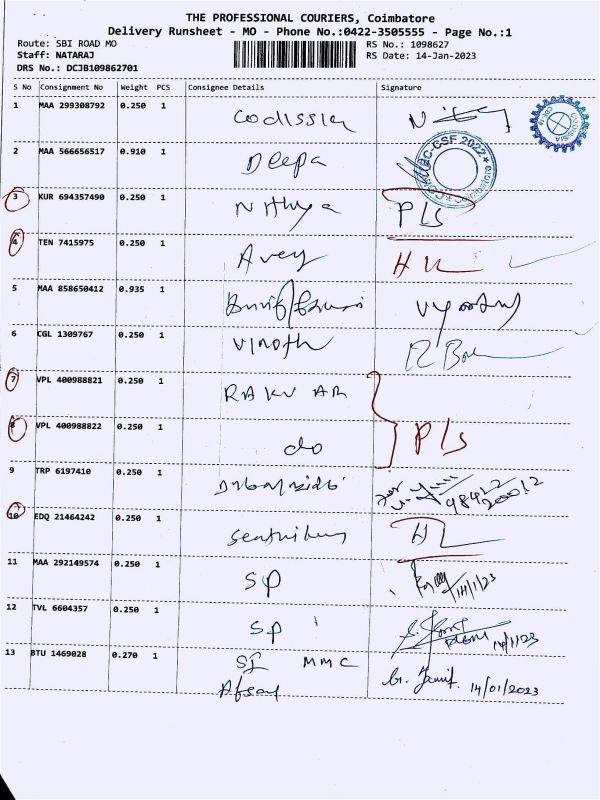 THE PROFESSIONAL COURIERS, Coimbatore
Delivery Runsheet - MO - Phone No.:0422-3505555 - Page No.:1
Route: SBI ROAD MO
RS No.: 1098627
Staff: NATARAJ
RS Date: 14-Jan-2023
DRS No.: DCJB109862701
S No Consignment No Weight PCS Consignee Details Signature
1 MAA 299308792 0.250 1 Codissia
2 MAA 566656517 0.910 1 Deepa
3 KUR 694357490 0.250 1 Nithya PLS
4 TEN 7415975 0.250 1 Avey HL
5 MAA 858650412 0.935 1
6 CGL 1309767 0.250 1 Vinoth
7 VPL 400988821 0.250 1
8 VPL 400988822 0.250 1 do Pls
9 TRP 6197410 0.250 1
10 EDQ 21464242 0.250 1 HL
11 MAA 292149574 0.250 1 SP 14/1/23
12 TVL 6604357 0.250 1 SP 14/1/23
13 BTU 1469028 0.270 1 MMC
14/01/2023